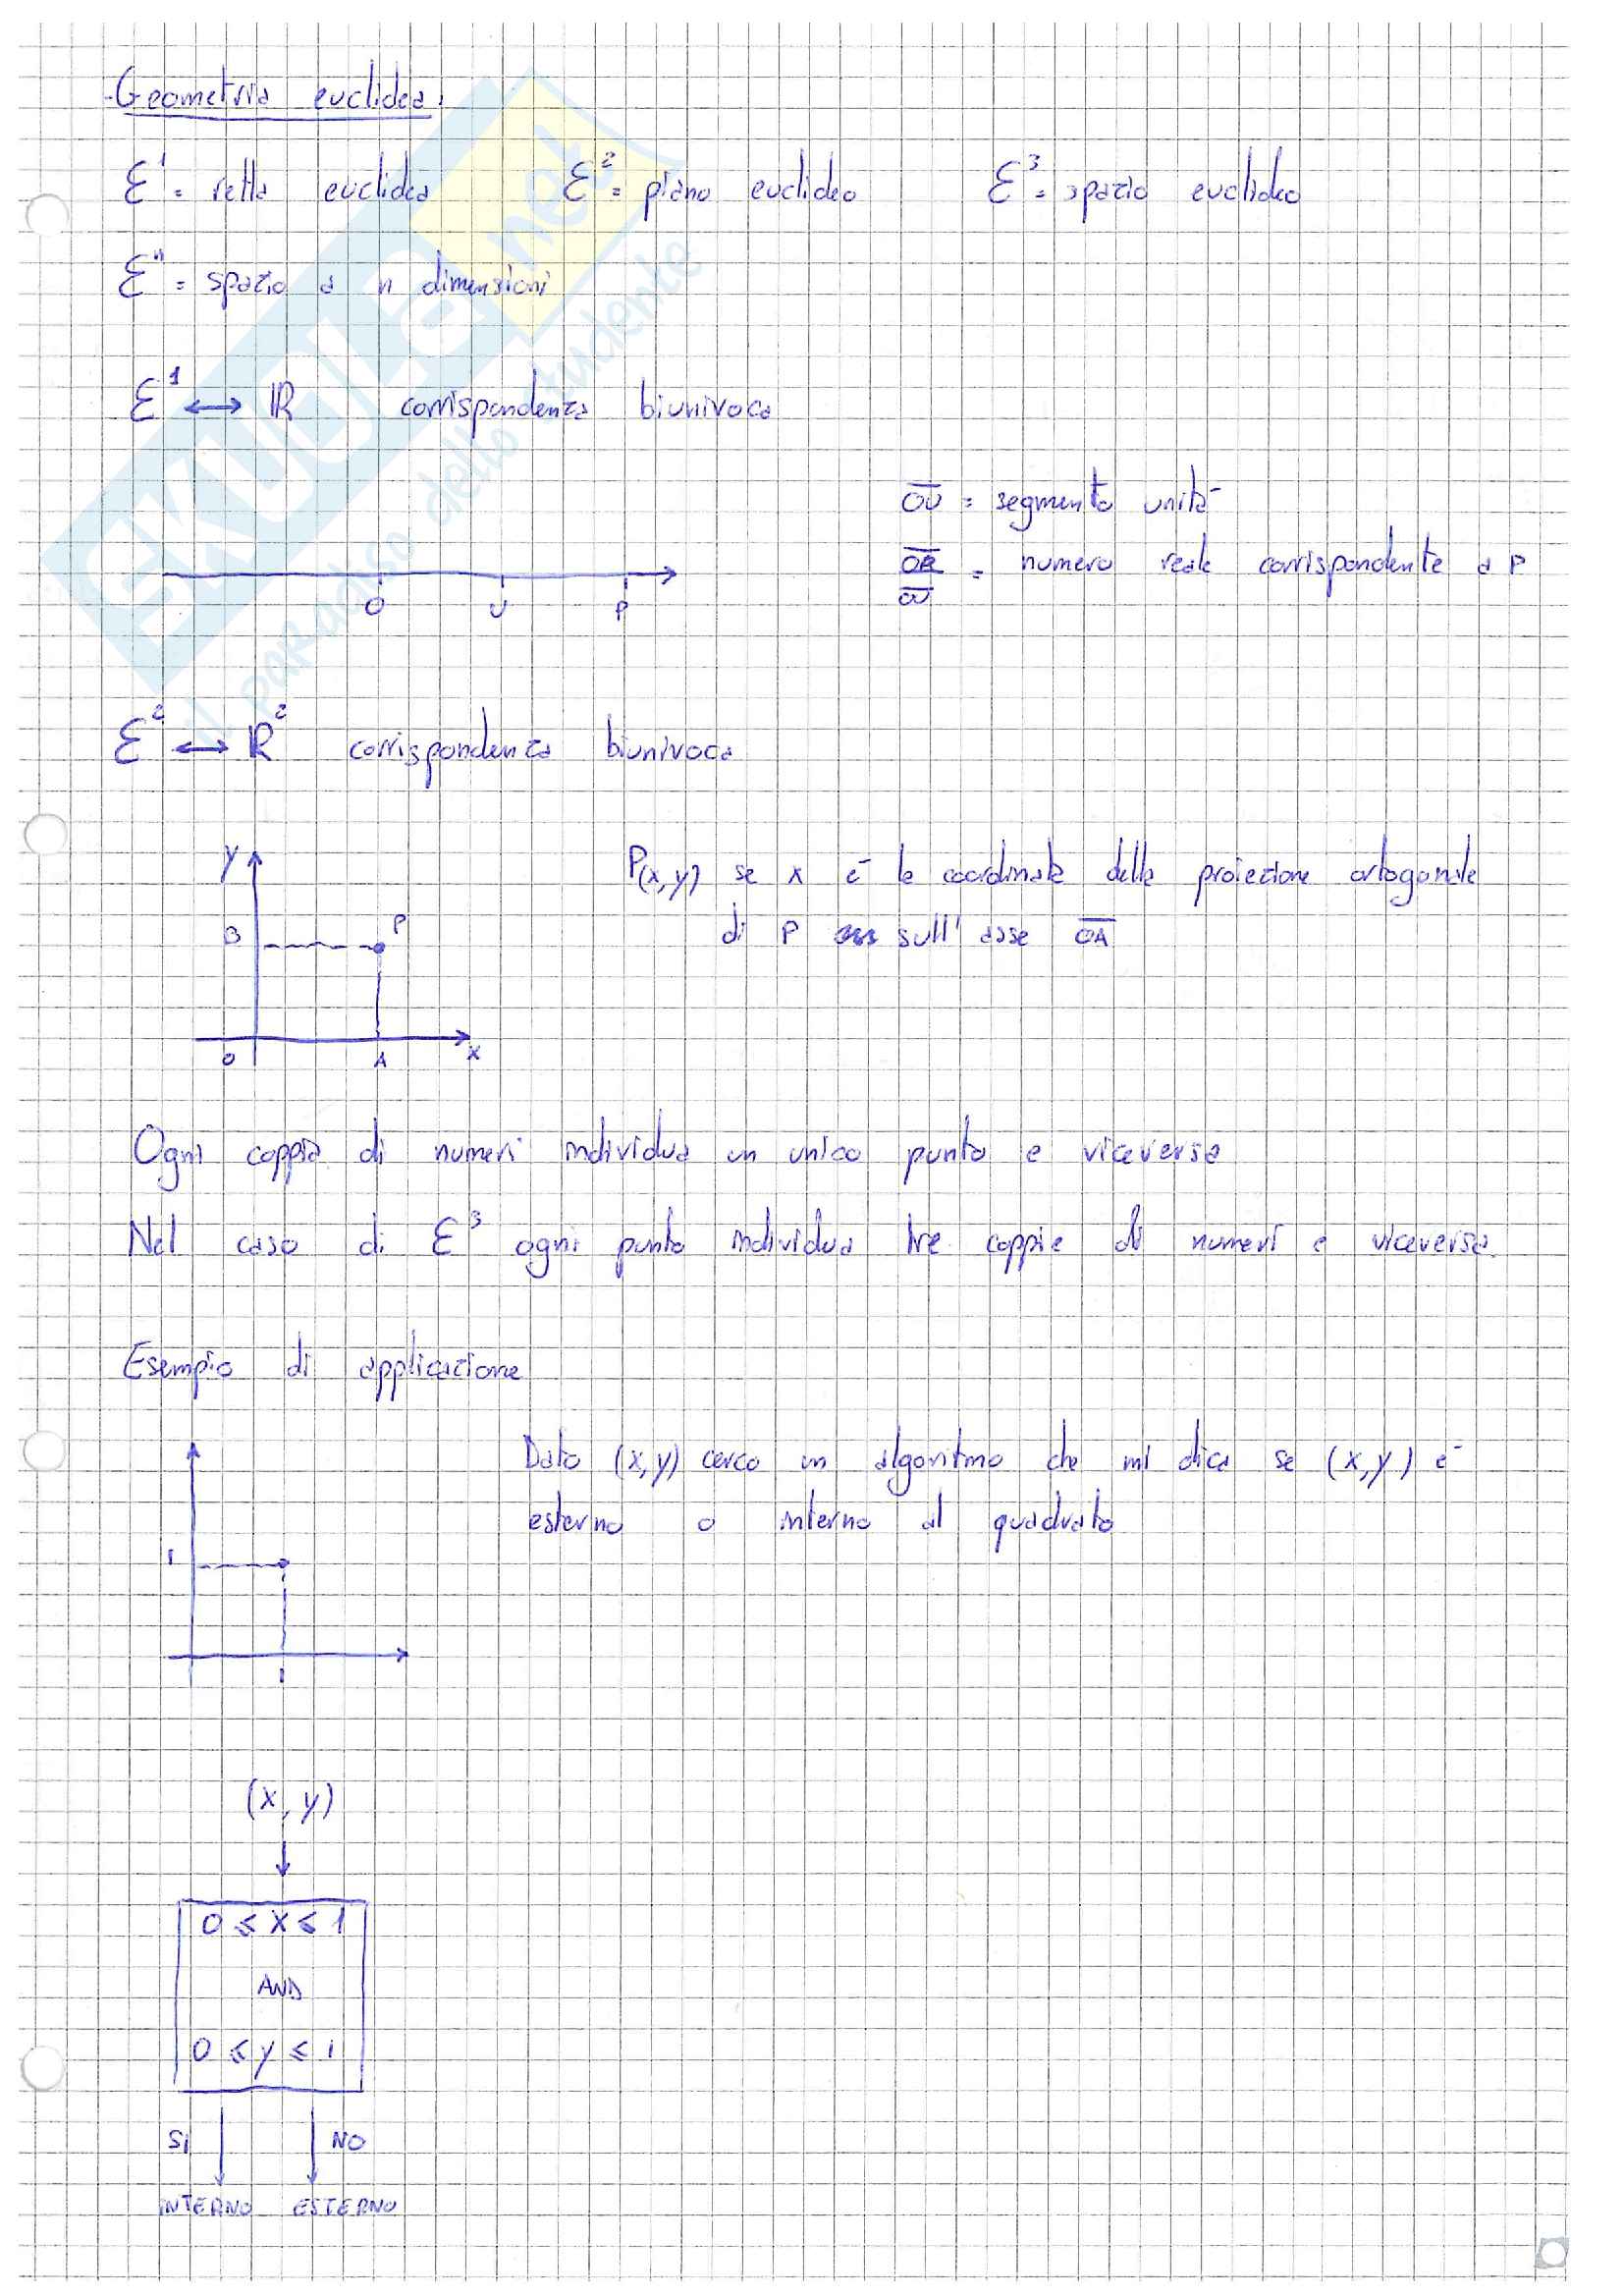 - Geometria euclidea:
Ɛ¹ = retta euclidea Ɛ² = piano euclideo Ɛ³ = spazio euclideo
Ɛⁿ = spazio a n dimensioni
Ɛ¹ ↔ ℝ corrispondenza biunivoca
OU = segmento unità
OP/OU = numero reale corrispondente a P
O U P
Ɛ² ↔ ℝ² corrispondenza biunivoca
y
P(x,y) se x è la coordinata della proiezione ortogonale
di P sull'asse OA
B P
O A x
Ogni coppia di numeri individua un unico punto e viceversa
Nel caso di Ɛ³ ogni punto individua tre coppie di numeri e viceversa.
Esempio di applicazione
Dato (x,y) cerco un algoritmo che mi dica se (x,y) è
esterno o interno al quadrato
1
1
(x, y)
0 ≤ x ≤ 1
AND
0 ≤ y ≤ 1
SI NO
INTERNO ESTERNO
SKUOLA.net
il paradiso dello studente